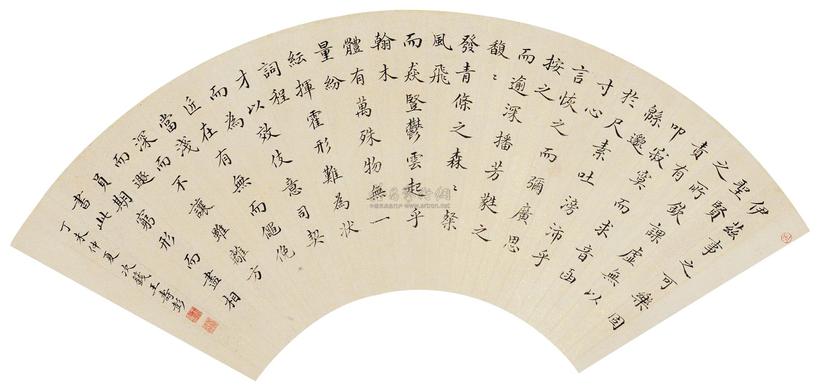 伊茲事之可樂固
聖賢
之所欽課虛無以
責有
叩寂寞而求音函
緜邈
於尺素吐滂沛乎
寸心
言恢之而彌廣思
按之
而逾深播芳蕤之
馥〻
發青條之森〻粲
風飛
而猋豎鬱雲起乎
翰木
體有萬殊物無一
量紛
紜揮霍形難為狀
詞程
才以效伎意司契
而為
匠在有無而僶俛
當淺
深而不讓雖離方
而遯
員期窮形而盡相
書此
丁未仲夏次籛王壽彭